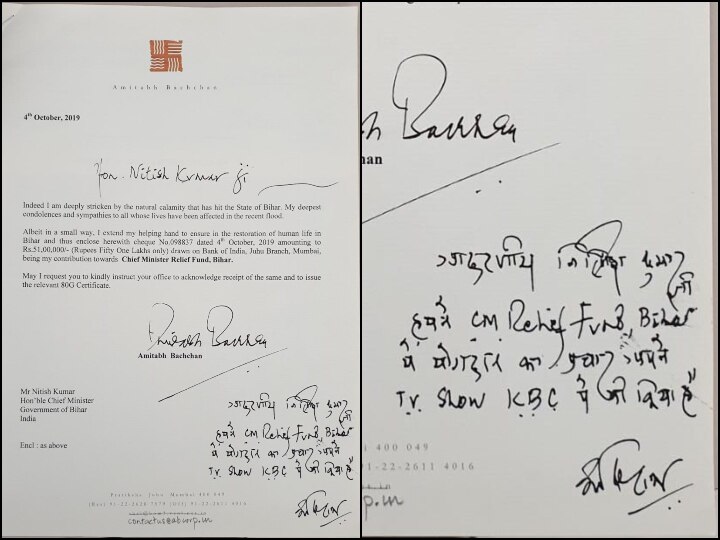 Amitabh Bachchan
4th October, 2019
Hon. Nitish Kumar Ji
Indeed I am deeply stricken by the natural calamity that has hit the State of Bihar. My deepest
condolences and sympathies to all whose lives have been affected in the recent flood.
Albeit in a small way, I extend my helping hand to ensure in the restoration of human life in
Bihar and thus enclose herewith cheque No.098837 dated 4th October, 2019 amounting to
Rs.51,00,000/- (Rupees Fifty One Lakhs only) drawn on Bank of India, Juhu Branch, Mumbai,
being my contribution towards Chief Minister Relief Fund, Bihar.
May I request you to kindly instruct your office to acknowledge receipt of the same and to issue
the relevant 80G Certificate.
Amitabh Bachchan
Amitabh Bachchan
Mr Nitish Kumar
Hon'ble Chief Minister
Government of Bihar
India
Encl : as above
आदरणीय नितिश कुमार
जी
हमने CM Relief Fund, Bihar
में योगदान का प्रचार अपने
T.V. Show KBC में भी किया है
अमिताभ
Pratiksha Juhu Mumbai 400 049
91-22-2611 4016
h Bachchan
han
आदरणीय नितिश कुमार
जी
हमने CM Relief Fund, Bihar
में योगदान का प्रचार अपने
T.V. Show KBC में भी किया है
i 400 049
91-22-2611 4016
अमिताभ
p.in